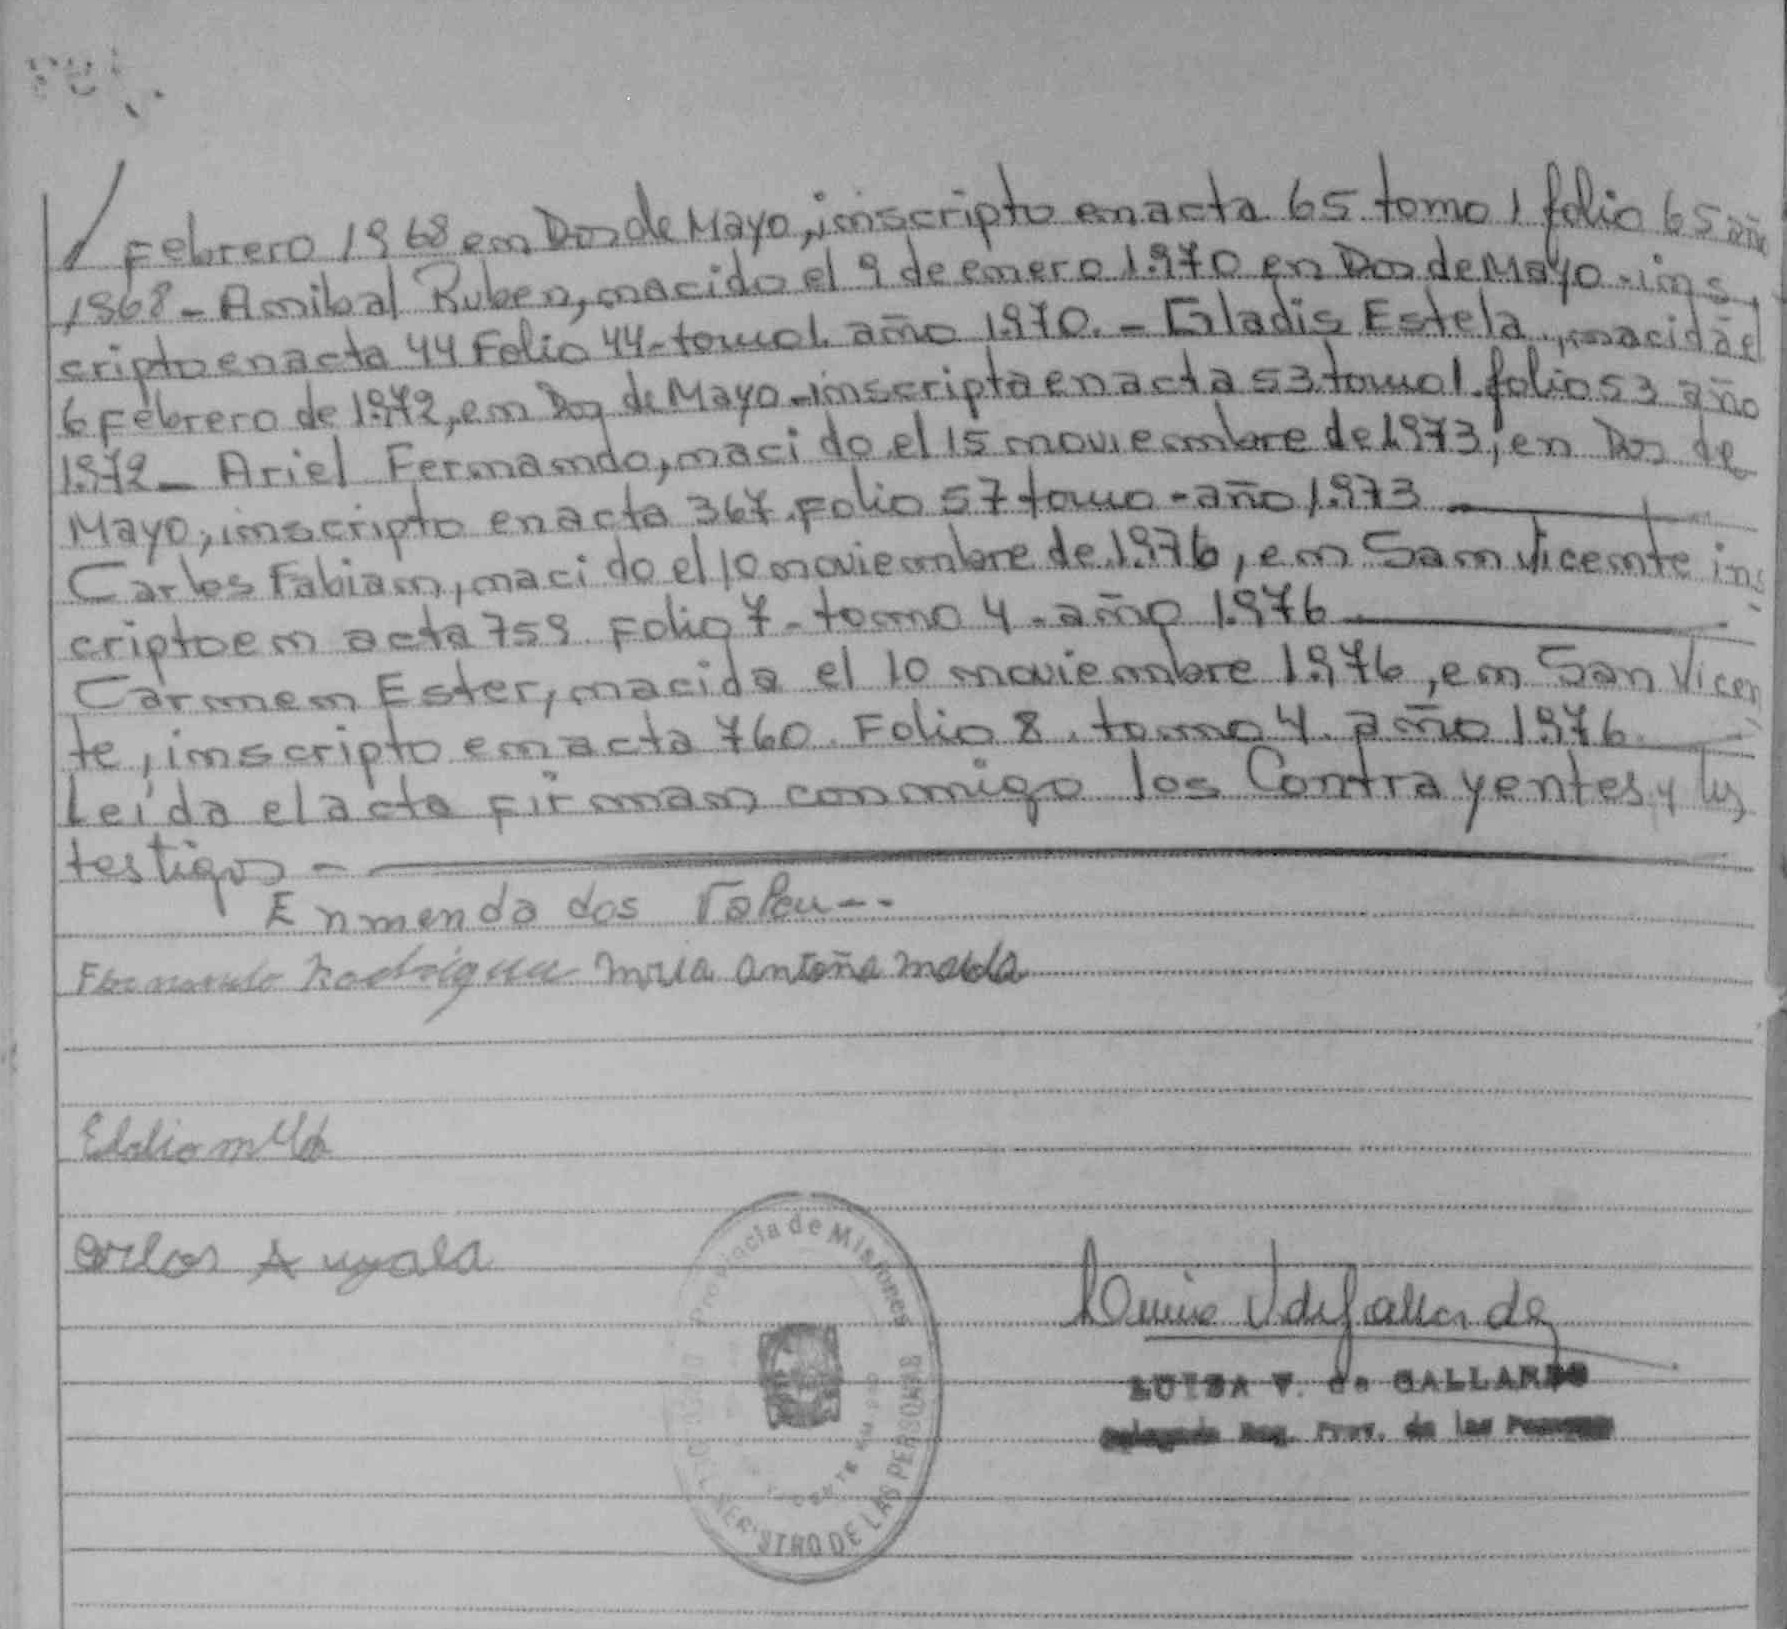 Febrero 1968 en Dos de Mayo, inscripto en acta 65 tomo 1 folio 65 año
1968 - Anibal Ruben, nacido el 9 de enero 1.970 en Dos de Mayo - ins
cripto en acta 44 Folio 44 - tomo 1. año 1970. - Gladis Estela, nacida el
6 Febrero de 1.972, en Dos de Mayo - inscripta en acta 53 tomo 1. folio 53 año
1.972 - Ariel Fernando, nacido el 15 noviembre de 1973, en Dos de
Mayo, inscripto en acta 367. Folio 57 tomo - año 1.973
Carlos Fabian, nacido el 10 noviembre de 1.976, en San Vicente ins
cripto en acta 759 Folio 7 - tomo 4 - año 1.976
Carmen Ester, nacida el 10 noviembre 1.976, en San Vicen
te, inscripto en acta 760. Folio 8. tomo 4. año 1976.
Leída el acta firman conmigo los Contrayentes y los
testigos -
Enmendados Valen --
Fernando Rodriguez Maria Antoña
Carlos Ayala
Provincia de Misiones
REGISTRO DE LAS PERSONAS
LUISA V. de GALLARDO
Delegada Reg. Prov. de las Personas